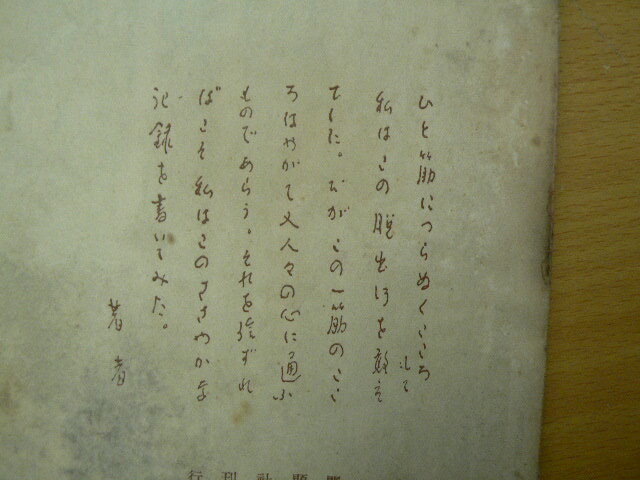 ひと筋につらぬくこころ
もて
私はこの脱出行を敢え
てした。だがこの一筋のここ
ろはやがて又人々の心に通ふ
ものであらう。それを信ずれ
ばこそ私はこのささやかな
記録を書いてみた。
著者
社刊行